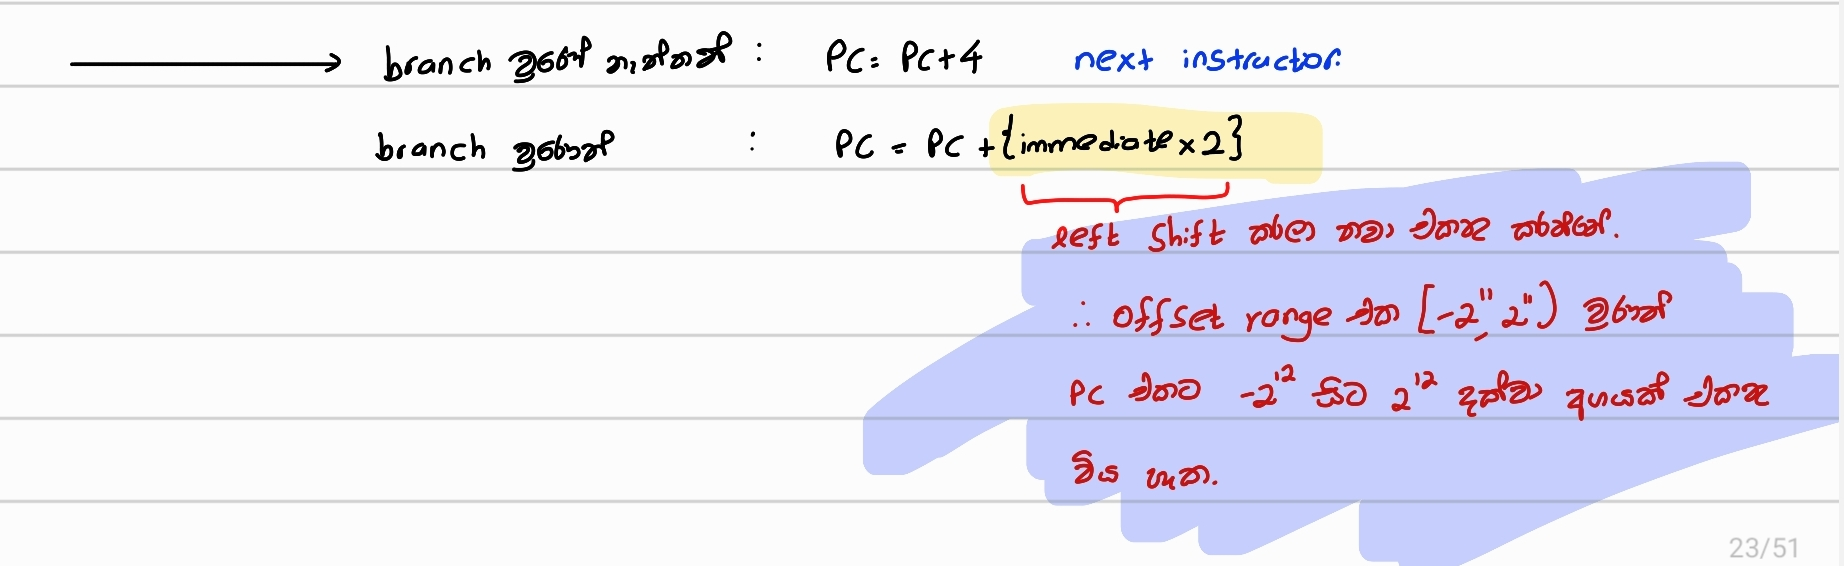 → branch වුණේ නැත්නම් : PC = PC+4 next instructor.
branch වුණොත් : PC = PC + {immediate x 2}
left shift කරලා තමා එකතු කරන්නේ.
∴ offset range එක [-2¹¹, 2¹¹) වුණත්
PC එකට -2¹² සිට 2¹² දක්වා අගයක් එකතු
විය හැක.
23/51